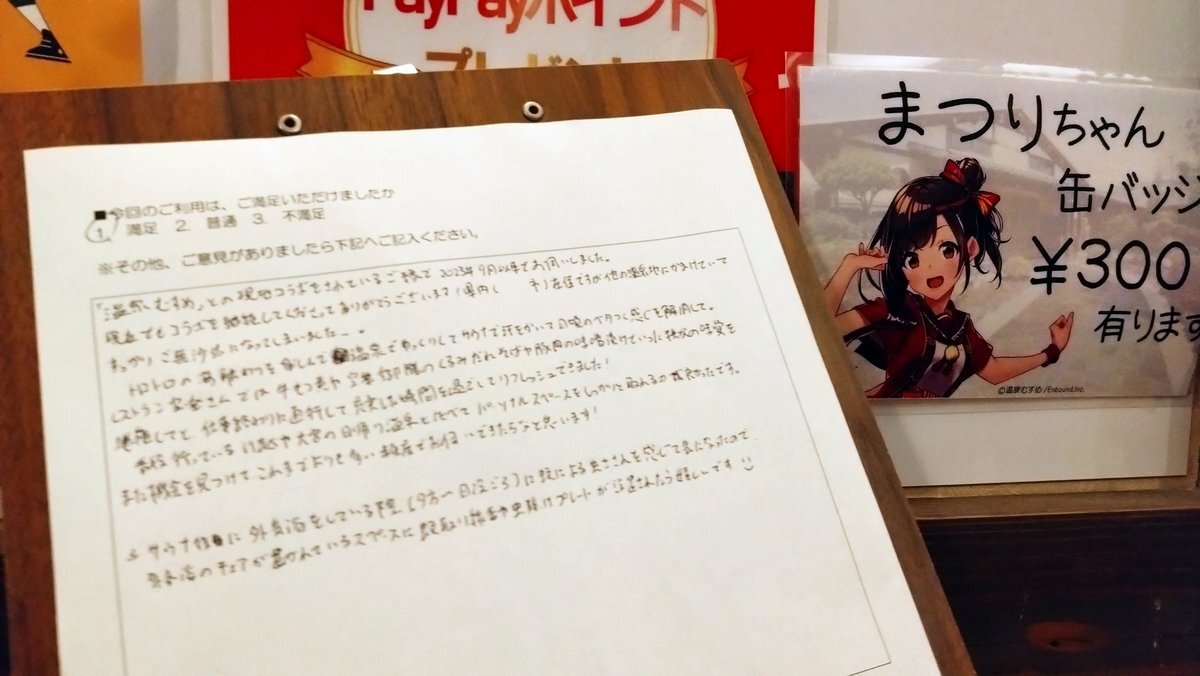 PayPayポイント
プレゼント
■今回のご利用は、ご満足いただけましたか
1. 満足 2. 普通 3. 不満足
※その他、ご意見がありましたら下記へご記入ください。
「温泉むすめ」との現地コラボをされているご縁で2023年9月以来でお伺いしました。
現在でもコラボを継続してくださってありがとうございます!県内( 市)在住ですが他の温泉地にかまけていて
すっかりご無沙汰になってしまいました…。
トロトロの お湯 を楽しんで 温泉でゆっくりしてサウナで汗をかいて日頃の ベタつく感じを解消して。
レストラン さんでは やくるみだれそばや豚肉の味噌漬けといった秩父の味覚を
堪能してと、仕事終わりに直行して充実した時間を過ごしてリフレッシュできました!
普段行っている川越や大宮の日帰り温泉と比べてパーソナルスペースをしっかりと取れるのが良かったです。
また機会を見つけてこれまでよりも多い頻度でお伺いできたらなと思います!
サウナ後に外気浴をしている際(夕方〜日没ごろ)に による虫さんを感じて気になったので、
外気浴のチェアが置かれているスペースに蚊取り線香や虫除けプレートが設置されたら嬉しいです
まつりちゃん
缶バッジ
¥300
有ります
©温泉むすめ/Enbound,Inc.